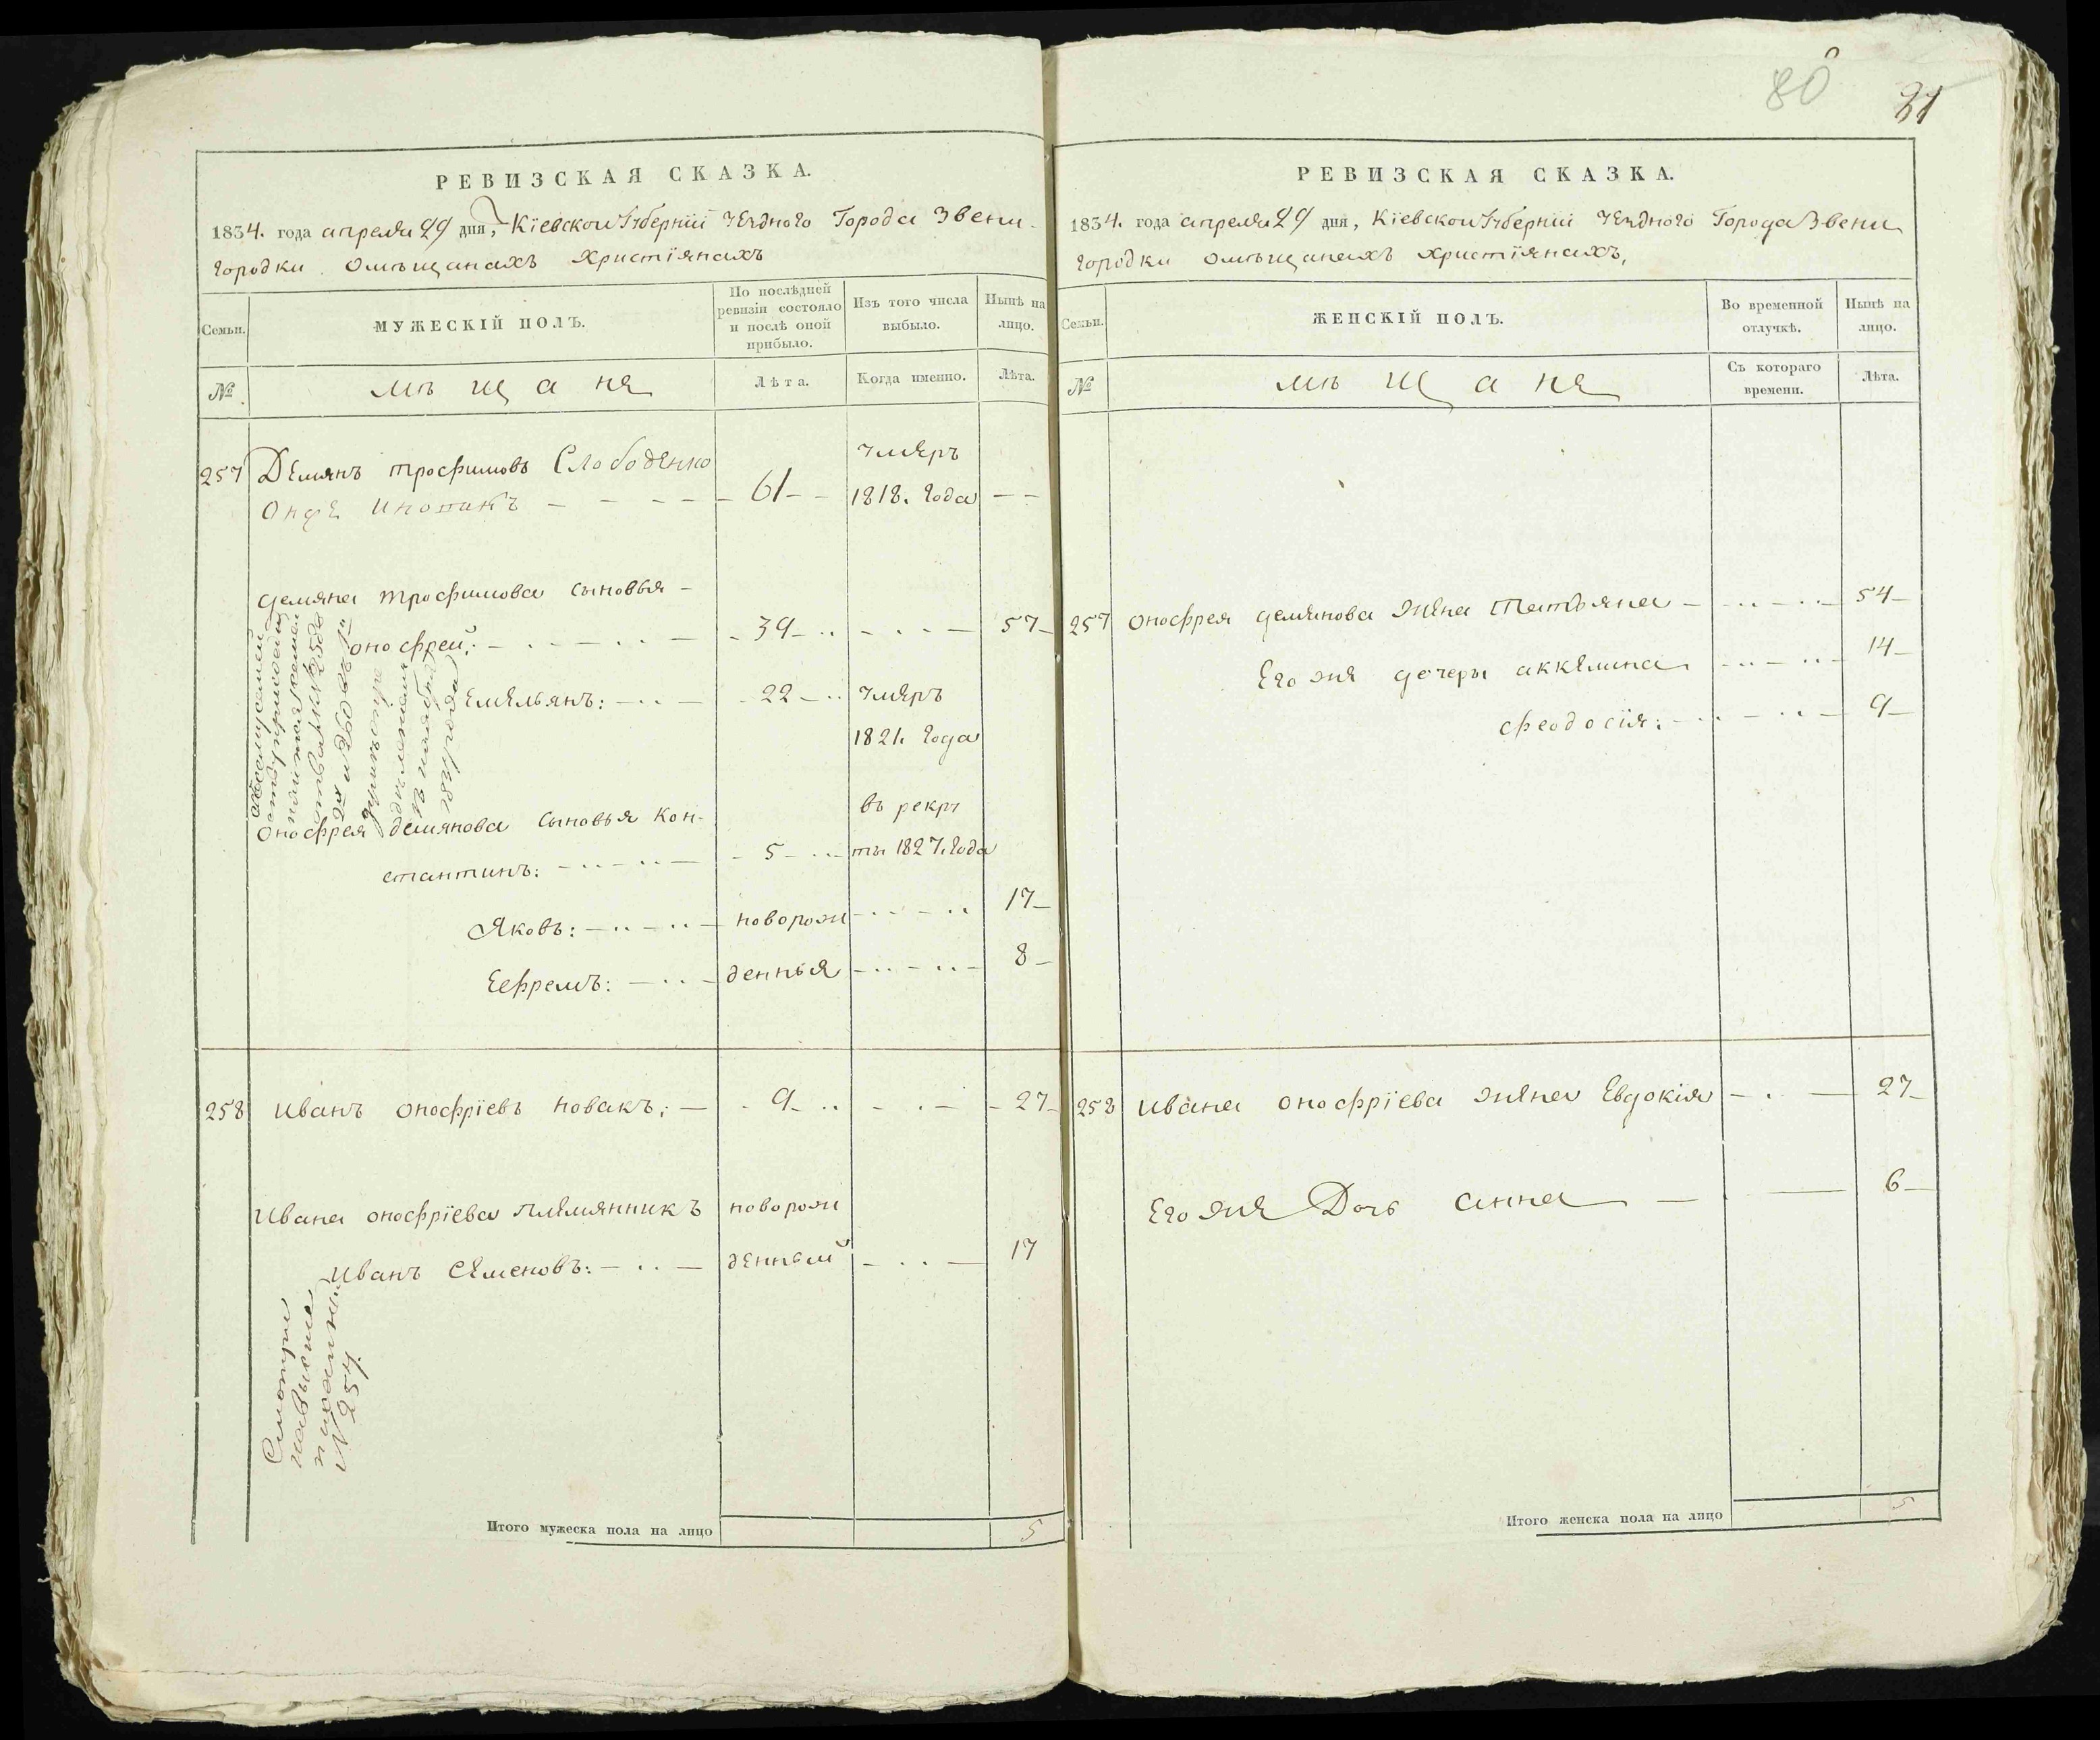 80
81
РЕВИЗСКАЯ СКАЗКА.
1834. года апреля 29 дня, Кіевской Губерніи Уездного Города Звени-
городки Омѣщанахъ Христіянахъ
Семьи.
МУЖЕСКІЙ ПОЛЪ.
По послѣдней
ревизіи состояло
и послѣ оной
прибыло.
Изъ того числа
выбыло.
Нынѣ на
лицо.
№
мѣщане
Лѣта.
Когда именно.
Лѣта.
257 Демянъ трофимовъ Слободенко
умеръ
Онже - - - - 61 - - 1818. года - -
демяна трофимова сыновья -
онофрей: - 39 - - 57
Емельянъ: - 22 - умеръ
1821 года
Онофрея демянова сыновья Кон-
въ рекру
стантинъ: - 5 - ты 1827. года
Яковъ: - новорож - 17
Еефремъ: - денныя - 8
258 иванъ онофріевъ новакъ: - 9 - - 27
Ивана онофріева племянникъ новорож
Иванъ Семеновъ: - денный - 17
Смотри
№ 257.
Итого мужеска пола на лицо 5
РЕВИЗСКАЯ СКАЗКА.
1834. года апреля 29 дня, Кіевской Губерніи Уездного Города Звени
городки Омѣщанахъ Христіянахъ,
Семьи.
ЖЕНСКІЙ ПОЛЪ.
Во временной
отлучкѣ.
Нынѣ на
лицо.
№
мѣщане
Съ котораго
времени.
Лѣта.
257 онофрея демянова жена Татьяна - 54
Его же дочеры аккелина - 14
феодосія: - 9
258 ивана онофріева жена Евдокія - 27
Его же Дочь анна - 6
Итого женска пола на лицо 5